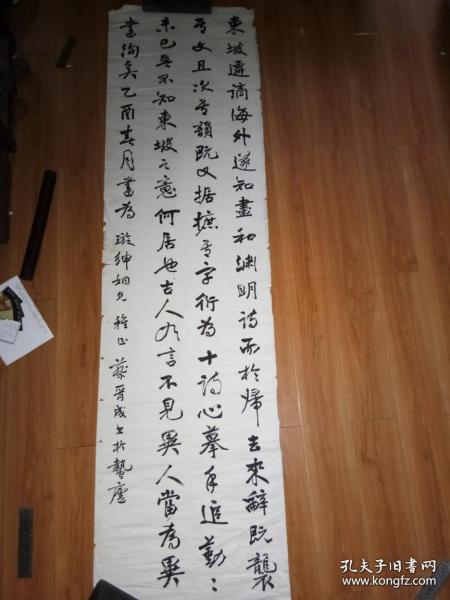 東坡遷謫海外遂知盡和淵明詩而於歸去來辭既襲
其文且次其韻既又据摭其字衍為十詩心摹手追勤々
未已吾不知東坡之意何居也古人有言不見異人當為異
書絢矣乙酉春月書為 璇紳姻兄 雅正 蔡晉成書於蟄廬
孔夫子旧书网
www.kongfz.com